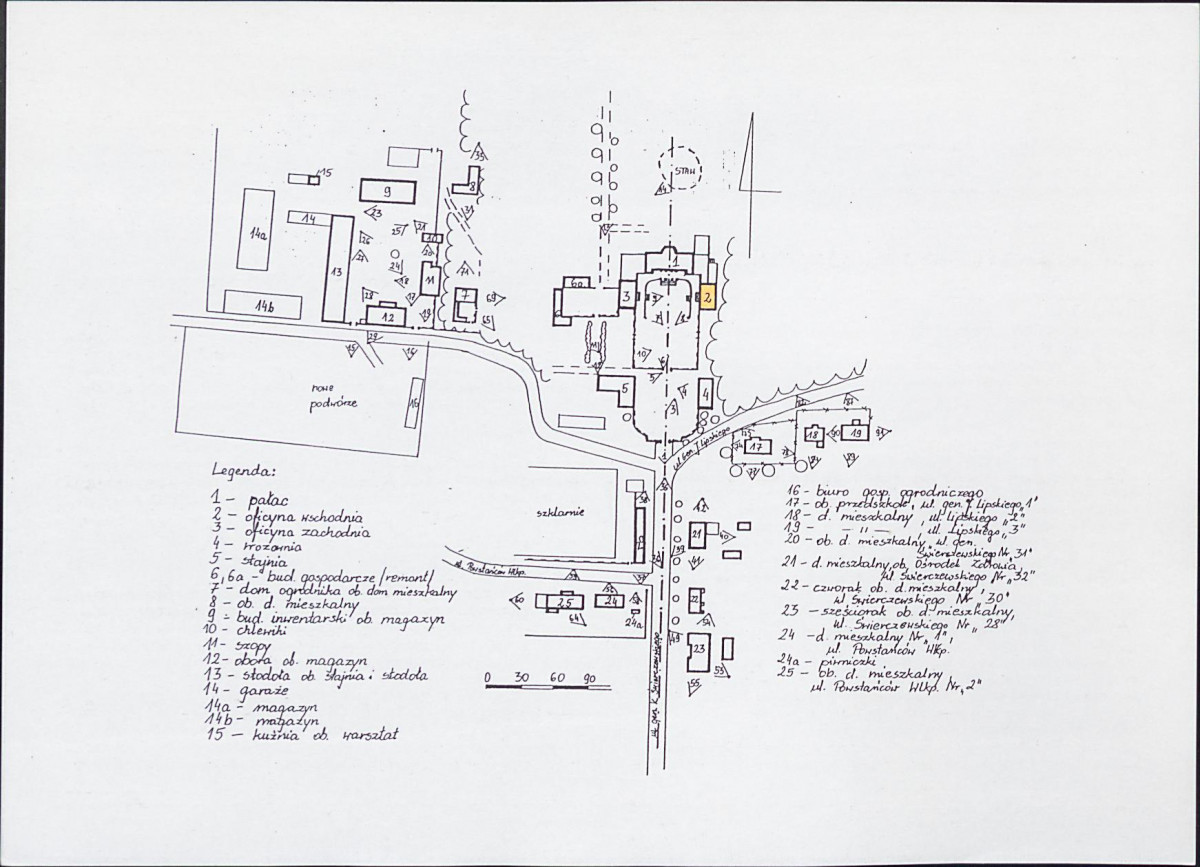 STAW
nowe
podwórze
szklarnie
ul. Gen. J. Lipskiego
ul. Powstańców Wlkp.
ul. gen. K. Świerczewskiego
0 30 60 90
Legenda:
1 - pałac
2 - oficyna wschodnia
3 - oficyna zachodnia
4 - wozownia
5 - stajnia
6, 6a - bud. gospodarcze /remont/
7 - dom ogrodnika ob. dom mieszkalny
8 - ob. d. mieszkalny
9 - bud. inwentarski ob. magazyn
10 - chlewiki
11 - szopy
12 - obora ob. magazyn
13 - stodoła ob. stajnia i stodoła
14 - garaże
14a - magazyn
14b - magazyn
15 - kuźnia ob. warsztat
16 - biuro gosp. ogrodniczego
17 - ob. przedszkole, ul. gen. J. Lipskiego „1"
18 - d. mieszkalny, ul. Lipskiego „2"
19 - — ıı — , ul. Lipskiego „3"
20 - ob. d. mieszkalny, ul. gen.
Świerczewskiego Nr „31"
21 - d. mieszkalny, ob. Ośrodek Zdrowia,
ul. Świerczewskiego Nr „32"
22 - czworak ob. d. mieszkalny,
ul. Świerczewskiego Nr „30"
23 - sześciorak ob. d. mieszkalny,
ul. Świerczewskiego Nr „28"
24 - d. mieszkalny Nr „1",
ul. Powstańców Wlkp.
24a - piwniczki
25 - ob. d. mieszkalny,
ul. Powstańców Wlkp. Nr „2"